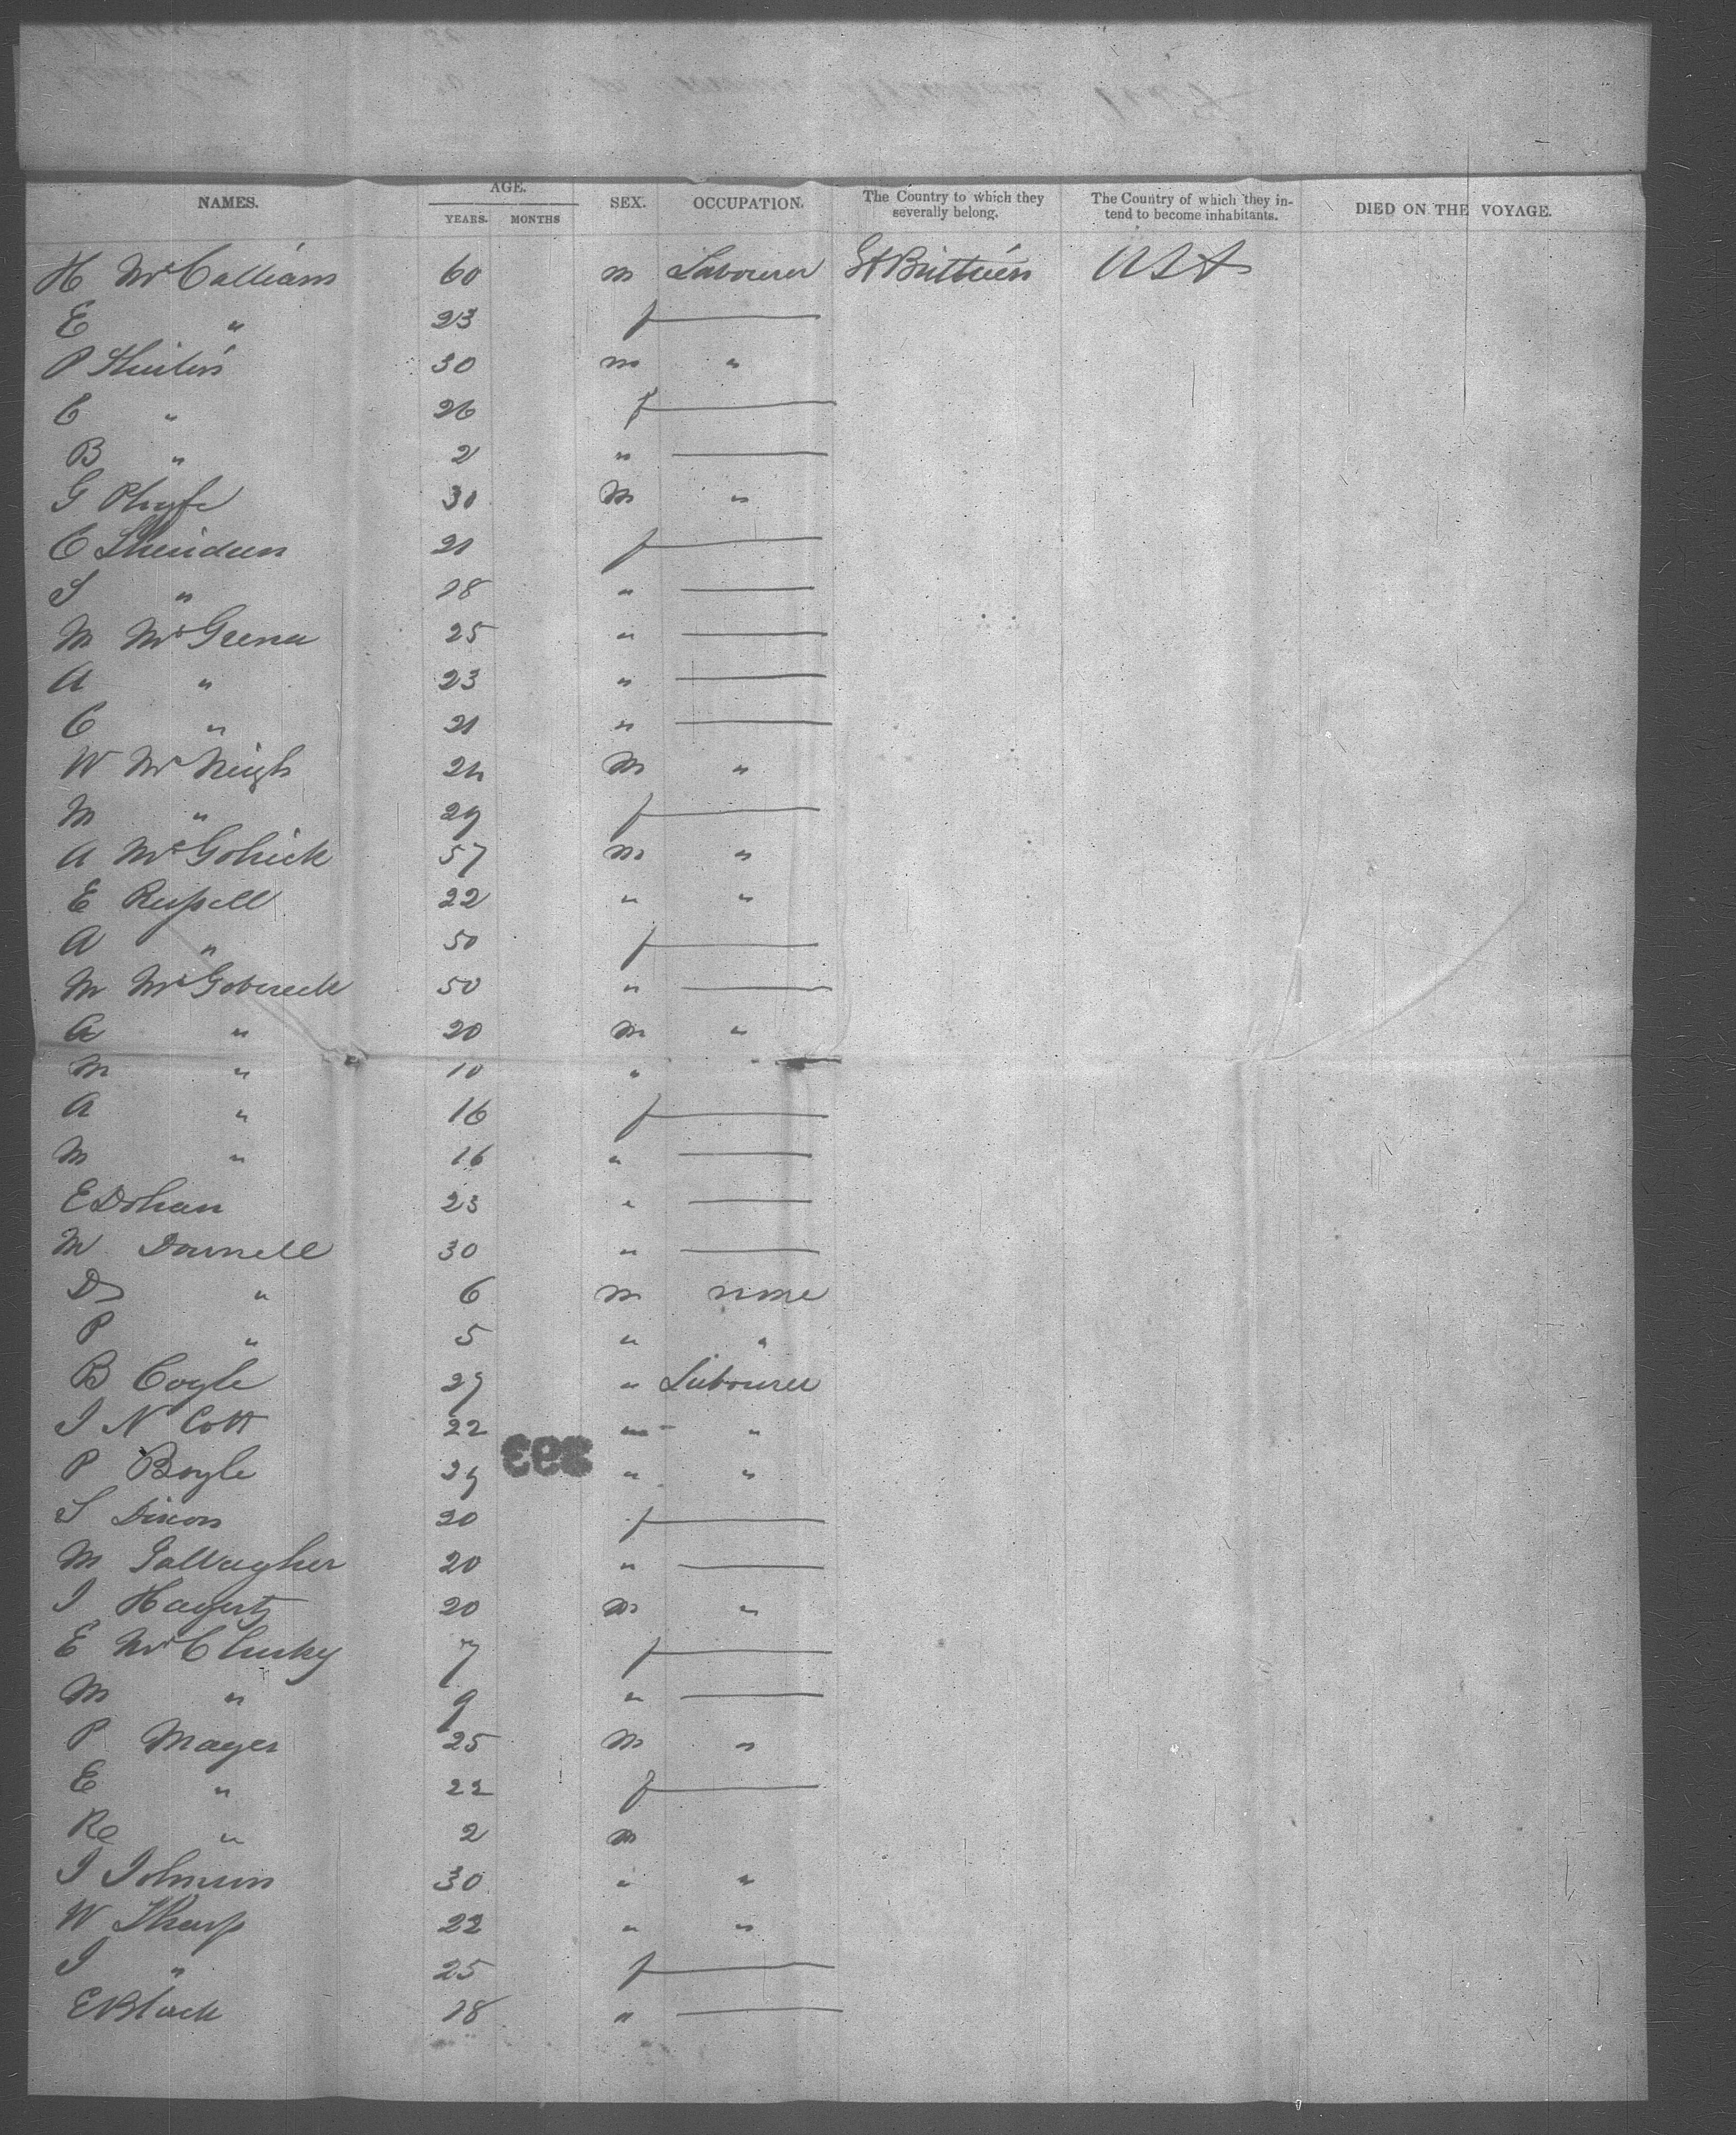 NAMES. AGE. YEARS. MONTHS SEX. OCCUPATION. The Country to which they severally belong. The Country of which they intend to become inhabitants. DIED ON THE VOYAGE.
H Mc Calliam 60 m Labourer Gt Brittien USA
E " 23 f
P 30 m "
C " 26 f
B " 2 "
G Phyfe 30 M "
C Sheridan 21 f
S " 18 "
M Mc Grena 25 "
A " 23 "
C " 21 "
W Mc Neigh 24 M "
M " 29 f
A Mc Golrick 57 M "
E Russell 22 " "
A " 50 f
M Mc 50 "
A " 20 m "
M " 10 " "
A " 16 f
M " 16 "
E Dohan 23 "
M Darnell 30 "
D " 6 m none
P " 5 " "
B Coyle 29 " Labourer
J N Cott 22 " "
P Boyle 29 " "
S Dixon 20 f
M Gallagher 20 "
J Hagerty 20 M "
E Mc Clusky 7 f
M " 9 "
P Mayes 25 M "
E " 22 f
Re " 2 m
J Johnson 30 " "
W Sharp 22 " "
J " 25 f
E Black 18 "
393